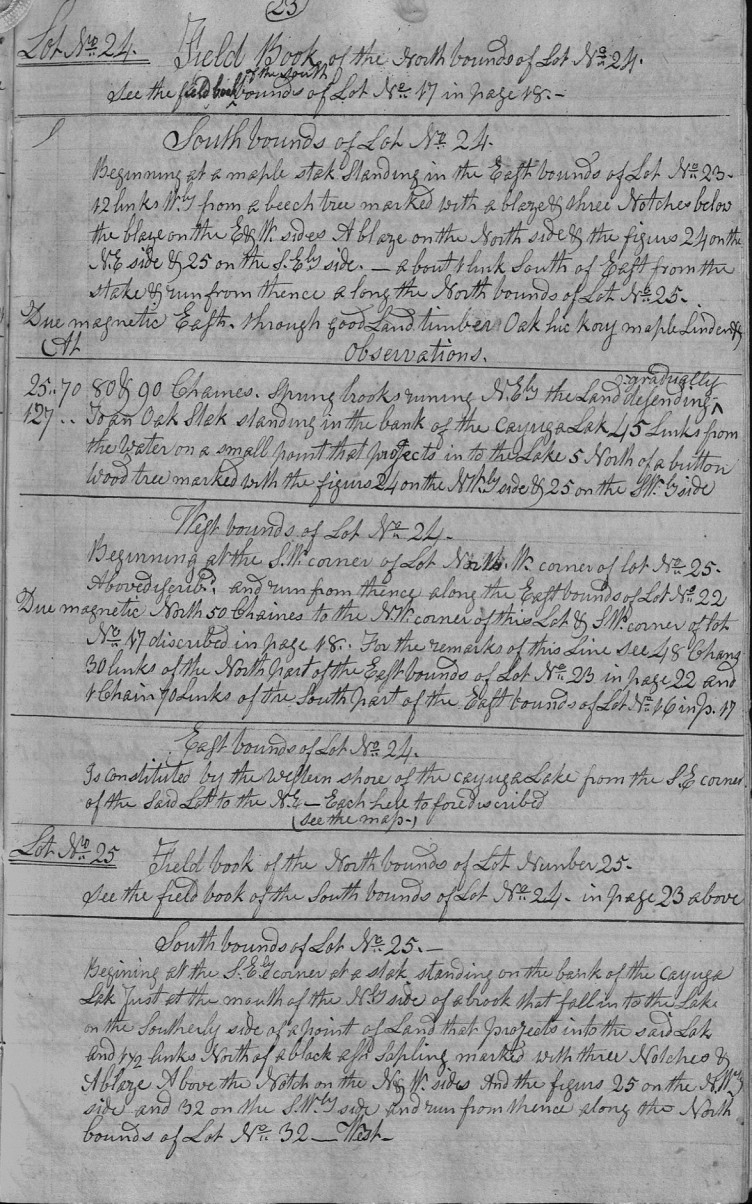 23
Lot No. 24. Field Book of the North bounds of Lot No. 24.
of the South
See the field book bounds of Lot No. 17 in page 18. -
South bounds of Lot No. 24.
Beginning at a maple stak Standing in the East bounds of Lot No. 23-
12 links W.ly from a beech tree marked with a blaze & three Notches below
the blaze on the E & W. sides A blaze on the North side & the figurs 24 on the
N.E side & 25 on the S.Ely side. - about 1 link South of East from the
stake & run from thence along the North bounds of Lot No. 25.
Due magnetic East. through good Land timber Oak hickory maple Linden &
At Observations.
gradually
25..70 80 & 90 Chaines. Spring brooks runing N.Ely the Land desending ^
127.. To an Oak Stak standing in the bank of the Cayuga Lak 45 Links from
the Water on a small point that projects in to the Lake 5 North of a button
wood tree marked with the figurs 24 on the N.W.ly side & 25 on the S.W.ly side
West bounds of Lot No. 24.
Beginning at the S.W. corner of Lot W. corner of lot No. 25.
Above discribd. and run from thence along the East bounds of Lot No. 22
Due magnetic North 50 Chaines to the N.W. corner of this Lot & S.W. corner of lot
No. 17 discribed in page 18. For the remarks of this Line see 48 Chans
30 links of the North part of the East bounds of Lot No. 23 in page 22 and
1 Chain 70 Links of the South part of the East bounds of Lot No. 16 in p. 17
East bounds of Lot No. 24.
Is constituted by the western shore of the cayuga Lake from the S.E corner
of the Said Lott to the N.E - Each here to fore discribed
(see the map-)
Lot No. 25 Field book of the North bounds of Lot Number 25-
See the field book of the South bounds of Lot No. 24- in page 23 above
South bounds of Lot No. 25.-
Begining at the S.Ely corner at a stak standing on the bank of the Cayuga
Lak Just at the mouth of the N.ly side of a brook that fall in to the Lake
on the Southerly side of a point of Land that projects into the said Lak
and 1 1/2 links North of a black ash Sapling marked with three Notches &
A blaze Above the Notch on the N & W. sides And the figurs 25 on the N.Wly
side and 32 on the S.W.ly side and run from thence along the North
bounds of Lot No. 32 - West-